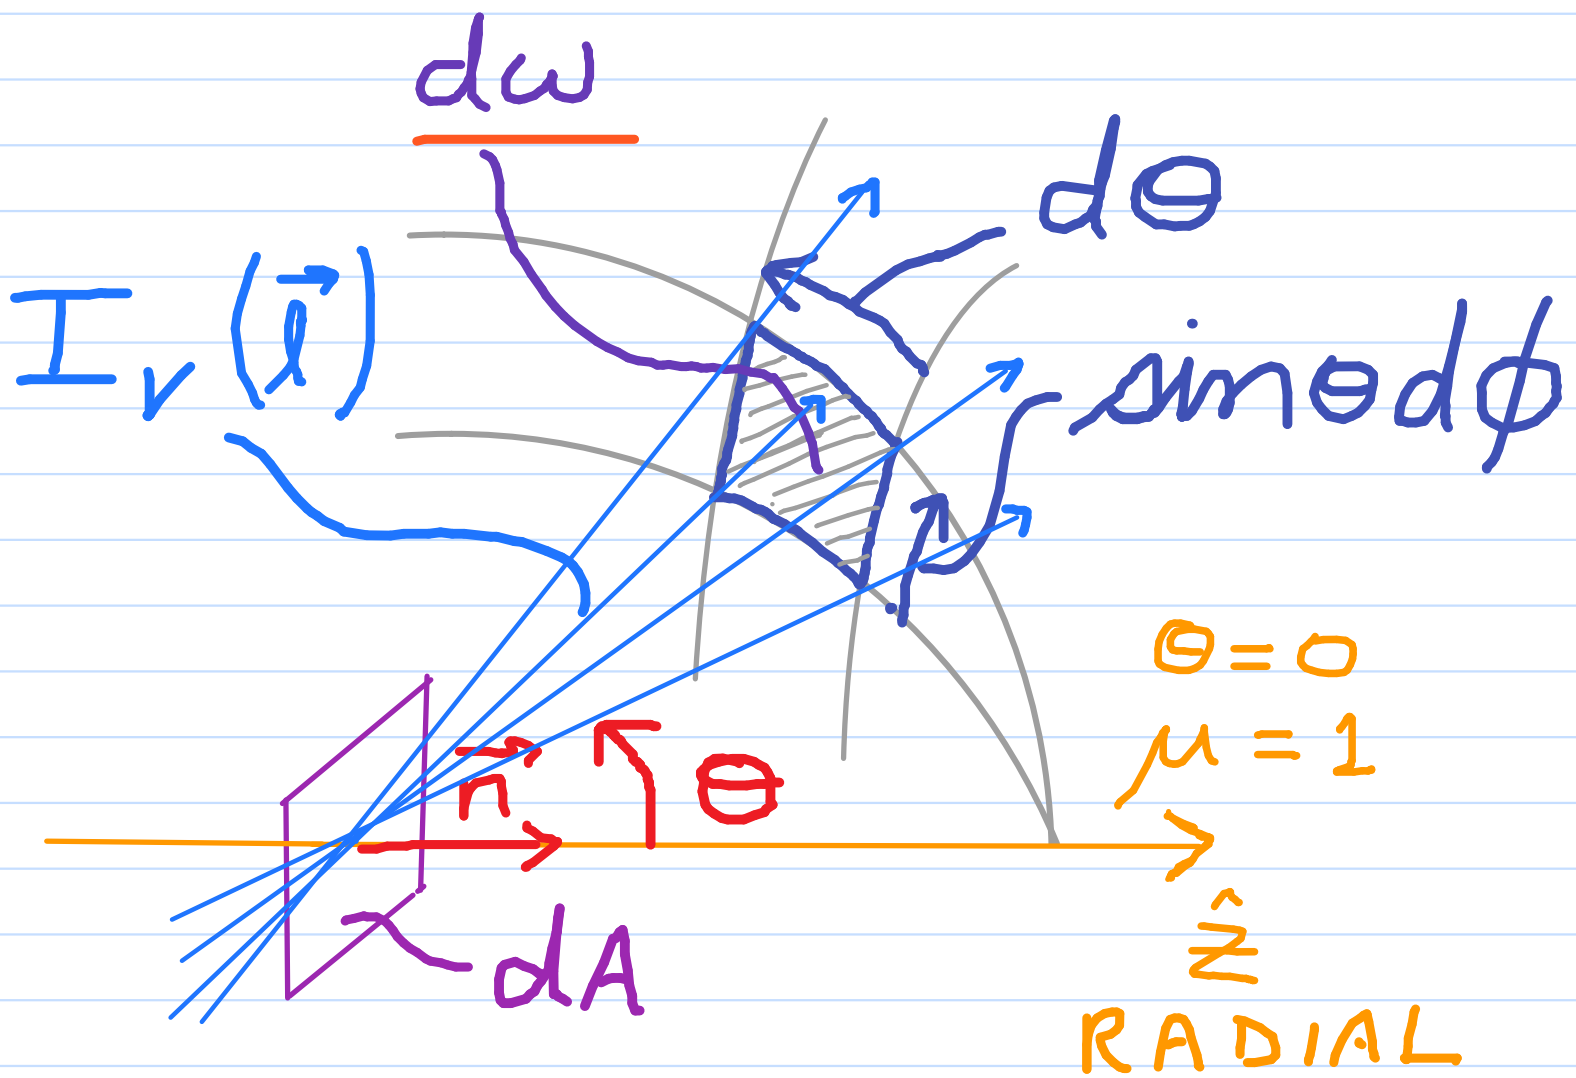 dω
dθ
I_ν(ℓ⃗)
sinθdϕ
θ=0
μ=1
n⃗
θ
ẑ
dA
RADIAL